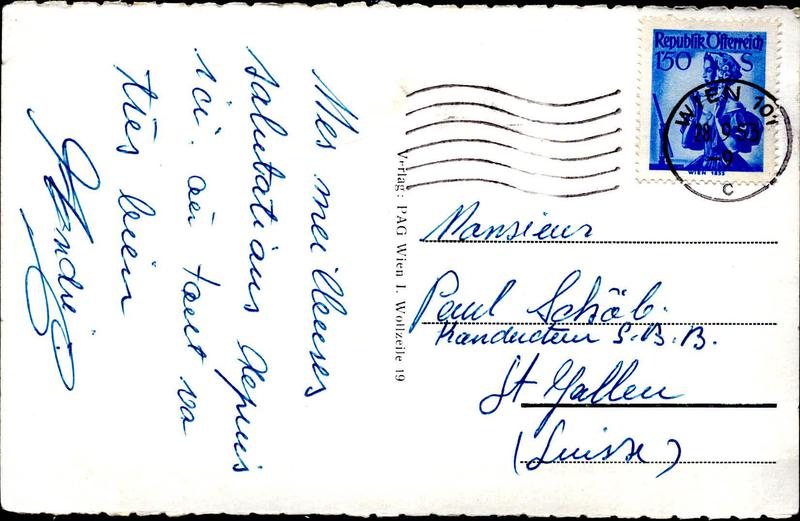 Mes meilleures
salutations depuis
ici. où tout va
très bien
Verlag: PAG Wien I. Wollzeile 19
Republik Österreich
1'50 S
WIEN 1853
WIEN 101
28.9.53
-9
C
Monsieur
Paul Schöb.
Konducteur S.B.B.
St Gallen
(Suisse)